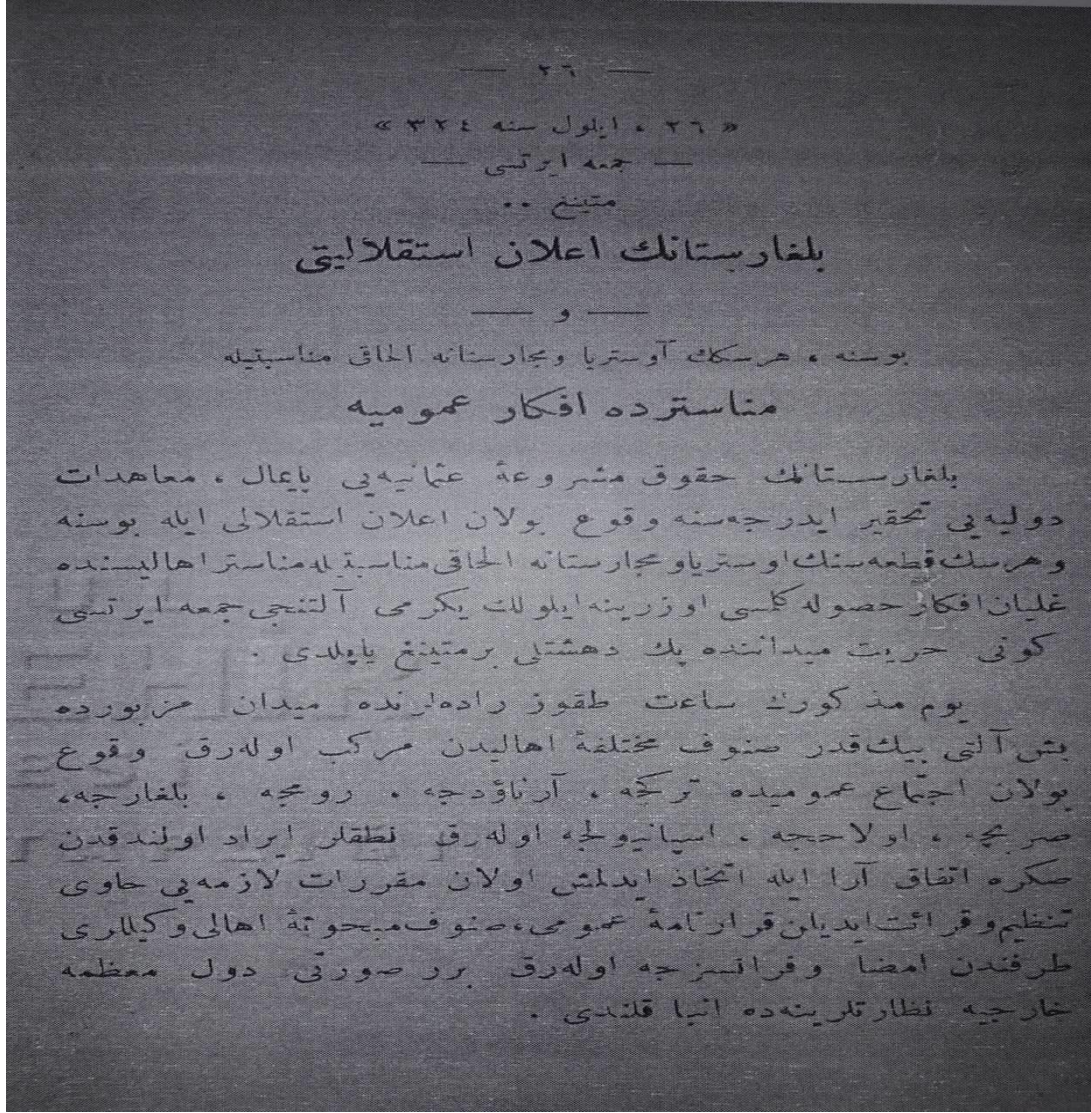 — ٢٦ —
« ٢٦ ، ايلول سنه ٣٢٤ »
— جمعه ايرتسى —
متينغ ..
بلغارستانك اعلان استقلاليتى
— و —
بوسنه ، هرسكك آوستريا ومجارستانه الحاقى مناسبتيله
مناسترده افكار عموميه
بلغارستانك حقوق مشروعهٔ عثمانيه‌يى پايمال ، معاهدات
دوليه‌يى تحقير ايدرجه‌سنه وقوع بولان اعلان استقلالى ايله بوسنه
وهرسك قطعه‌سنك اوستريا ومجارستانه الحاقى مناسبتيله مناستر اهاليسنده
غليان افكار حصوله كلسى اوزرينه ايلولك يكرمى آلتنجى جمعه ايرتسى
كونى حريت ميداننده پك دهشتلى برمتينغ ياپلدى .
يوم مذكورك ساعت طقوز راده‌لرنده ميدان مزبورده
بش آلتى بيك قدر صنوف مختلفهٔ اهاليدن مركب اوله‌رق وقوع
بولان اجتماع عموميده تركجه ، آرناؤدجه ، رومجه ، بلغارجه،
صربجه ، اولاحجه ، اسپانيولجه اوله‌رق نطقلر ايراد اولندقدن
صكره اتفاق آرا ايله اتخاذ ايدلمش اولان مقررات لازمه‌يى حاوى
تنظيم وقرائت ايديلن قرارنامهٔ عمومى، صنوف مبحوثهٔ اهالى وكيللرى
طرفندن امضا وفرانسزجه اوله‌رق برر صورتى دول معظمه
خارجيه نظارتلرينه‌ده انبا قلندى .